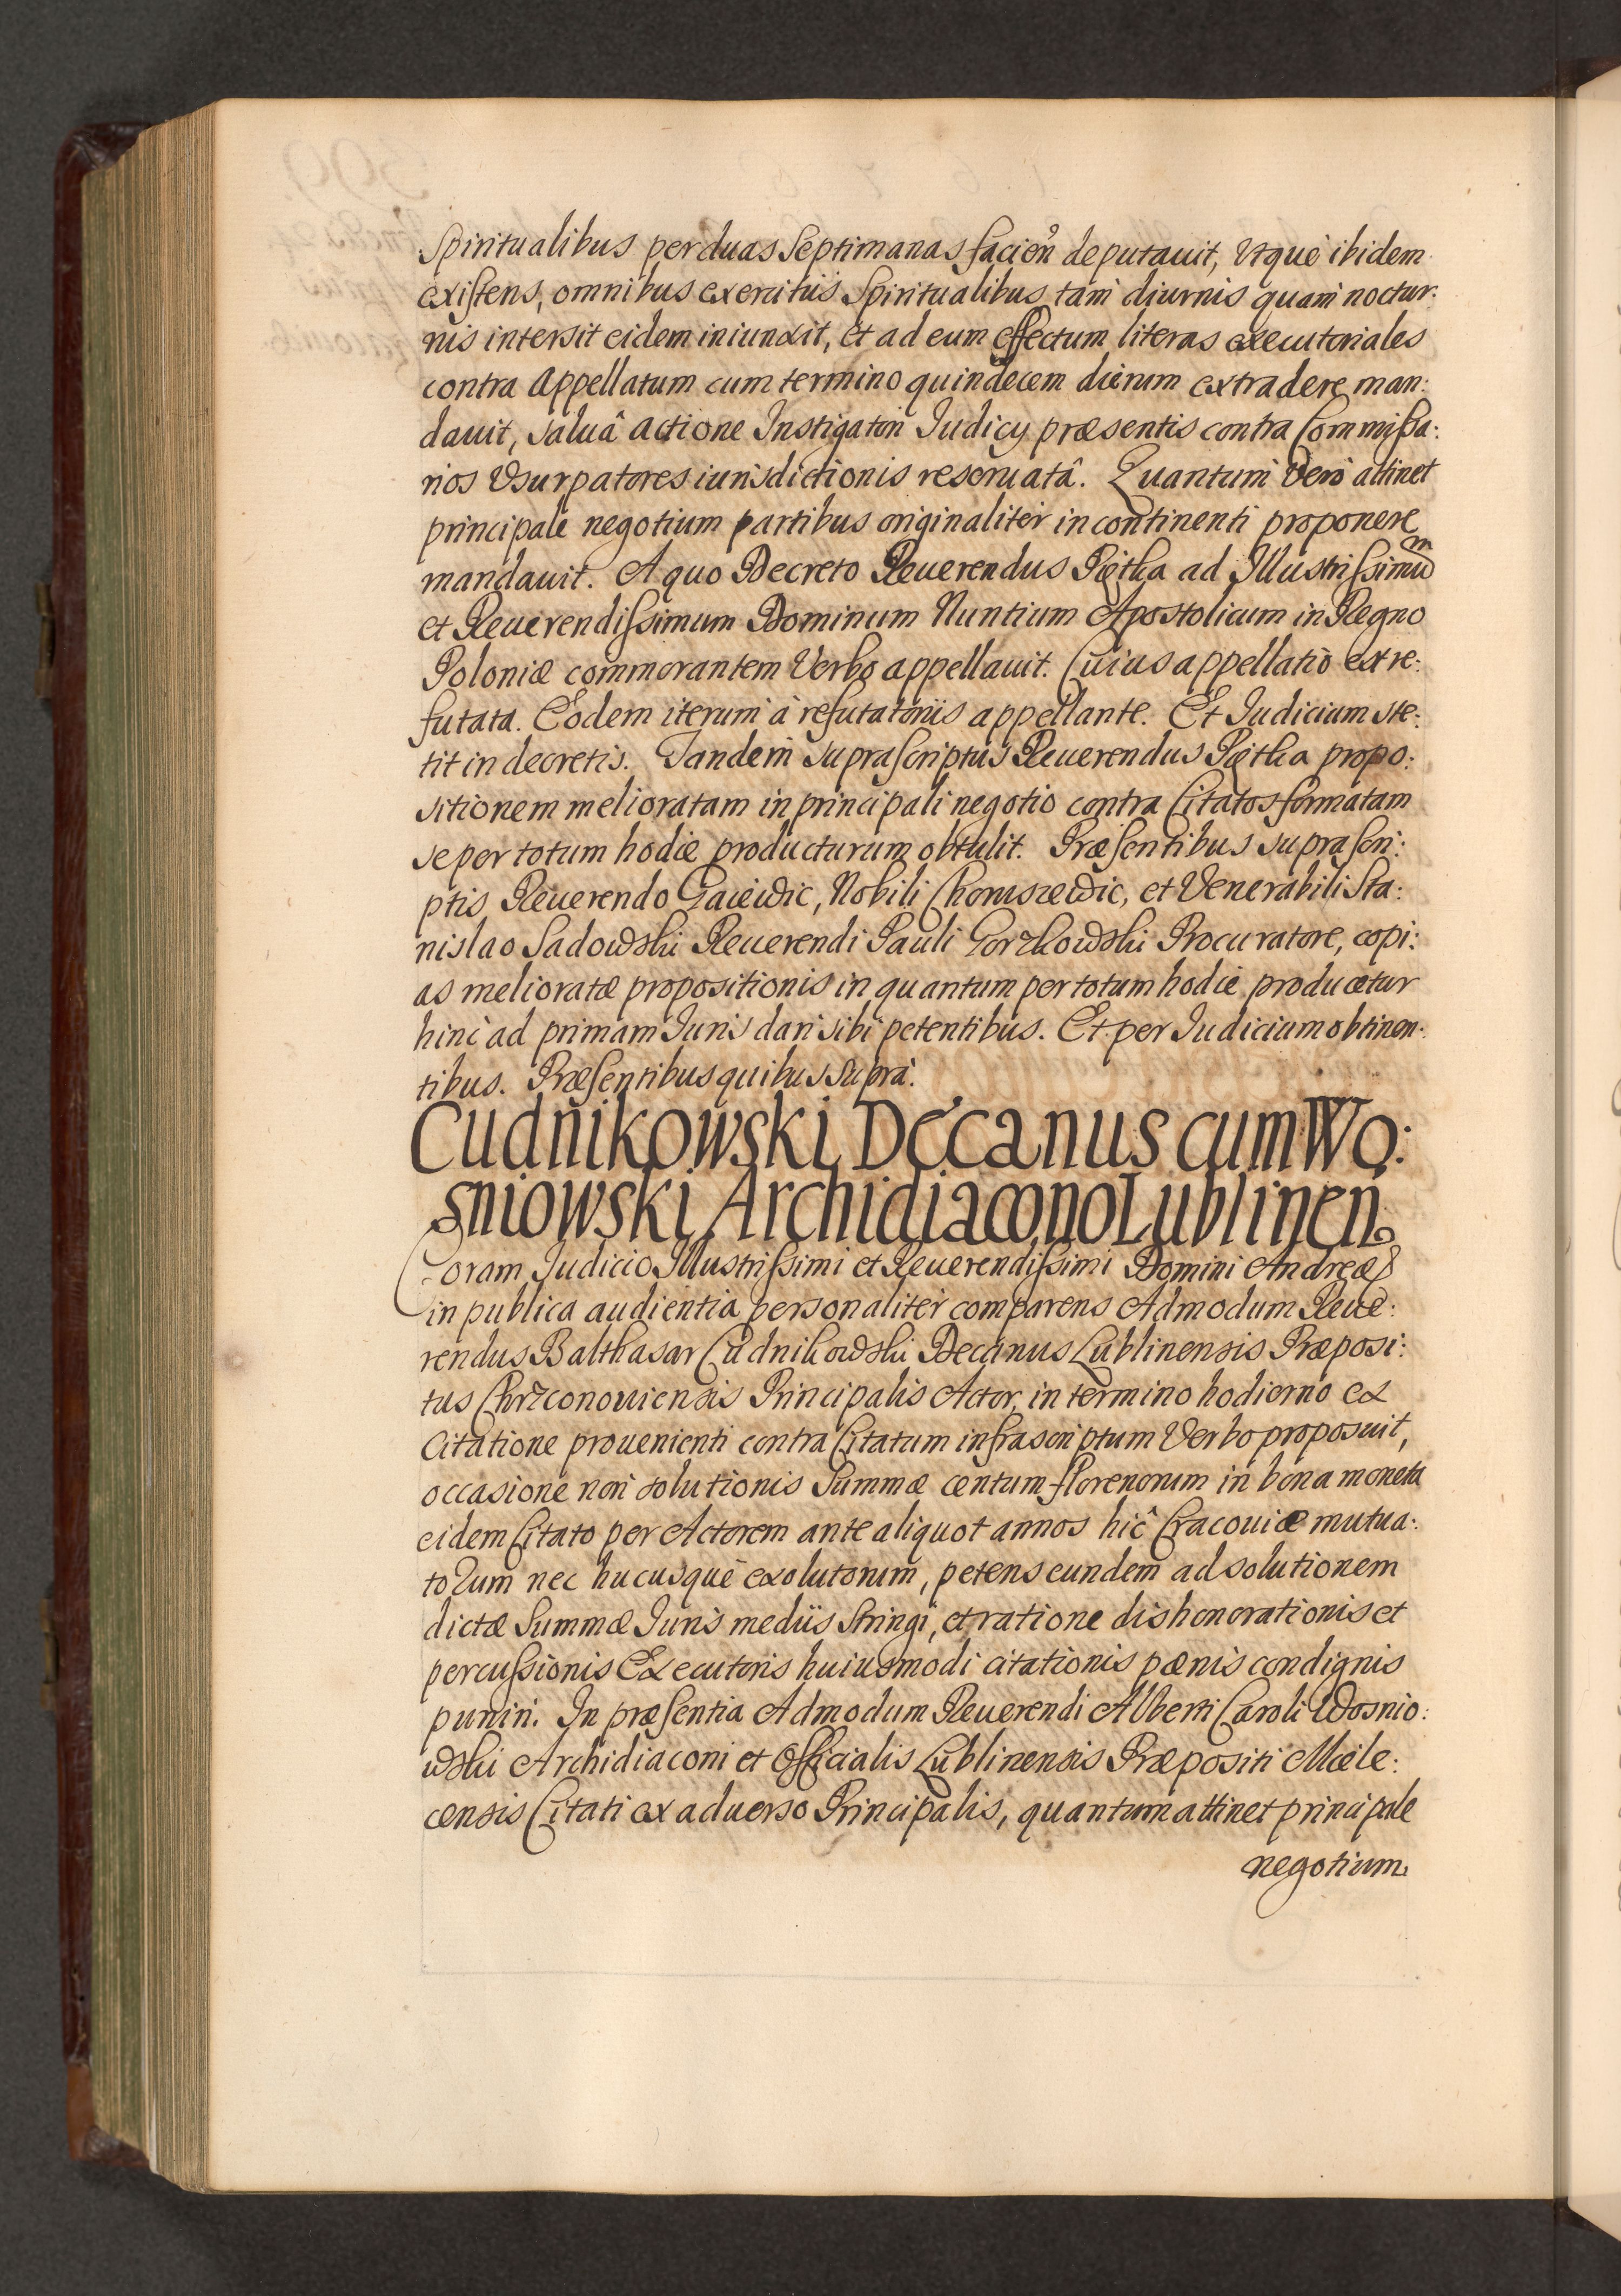 Spiritualibus per duas Septimanas facien̄ deputauit, Vtquè ibidem
existens, omnibus exercitijs Spiritualibus tam diurnis quam noctur:
nis intersit eidem iniunxit, et ad eum effectum literas executoriales
contra Appellatum cum termino quindecem dierum extradere man:
dauit, saluâ actione Instigatori Judicij præsentis contra Commissa:
rios Vsurpatores iurisdictionis reseruatâ. Quantum Verò attinet
principale negotium partibus originaliter in continenti proponere
mandauit. A quo Decreto Reuerendus Piętka ad Illustrissimum
et Reuerendissimum Dominum Nuntium Apostolicum in Regno
Poloniæ commorantem Verbo appellauit. Cuius appellatio est re:
futata. Eodem iterum à refutatorijs appellante. Et Judicium ste:
tit in decretis. Tandem suprascriptus Reuerendus Piętka propo:
sitionem melioratam in principali negotio contra Citatos formatam
se per totum hodie producturum obtulit. Præsentibus suprascri:
ptis Reuerendo Gaiewic, Nobili Chomszewic, et Venerabili Sta:
nislao Sadowski Reuerendi Pauli Gorzkowski Procuratore, copi:
as melioratæ propositionis in quantum per totum hodie producetur
hinc ad primam Juris dari sibi petentibus. Et per Judicium obtinen:
tibus. Præsentibus quibus Supra.
Cudnikowski Decanus cum Wo:
sniowski Archidiacono Lublinen
Coram Judicio Illustrissimi et Reuerendissimi Domini Andreæ
in publica audientia personaliter comparens Admodum Reue:
rendus Balthasar Cudnikowski Decanus Lublinensis Præposi:
tus Chrzconouiensis Principalis Actor, in termino hodierno ex
Citatione prouenienti contra Citatum infrascriptum Verbo proposuit,
occasione non solutionis Summæ centum florenorum in bona moneta
eidem Citato per Actorem ante aliquot annos hîc Cracouiæ mutua:
torum nec hucusquè exolutorum, petens eundem ad solutionem
dictæ Summæ Juris medijs stringi, et ratione dishonorationis et
percussionis Executoris huiusmodi citationis pænis condignis
puniri. In præsentia Admodum Reuerendi Alberti Caroli Wosnio:
wski Archidiaconi et Officialis Lublinensis Præpositi Miele:
censis Citati ex aduerso Principalis, quantum attinet principale
negotium